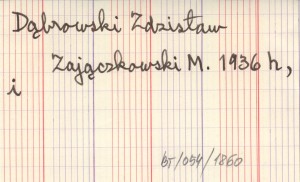 Dąbrowski Zdzisław
Zajączkowski M. 1936 h,
i
bT/054/1860